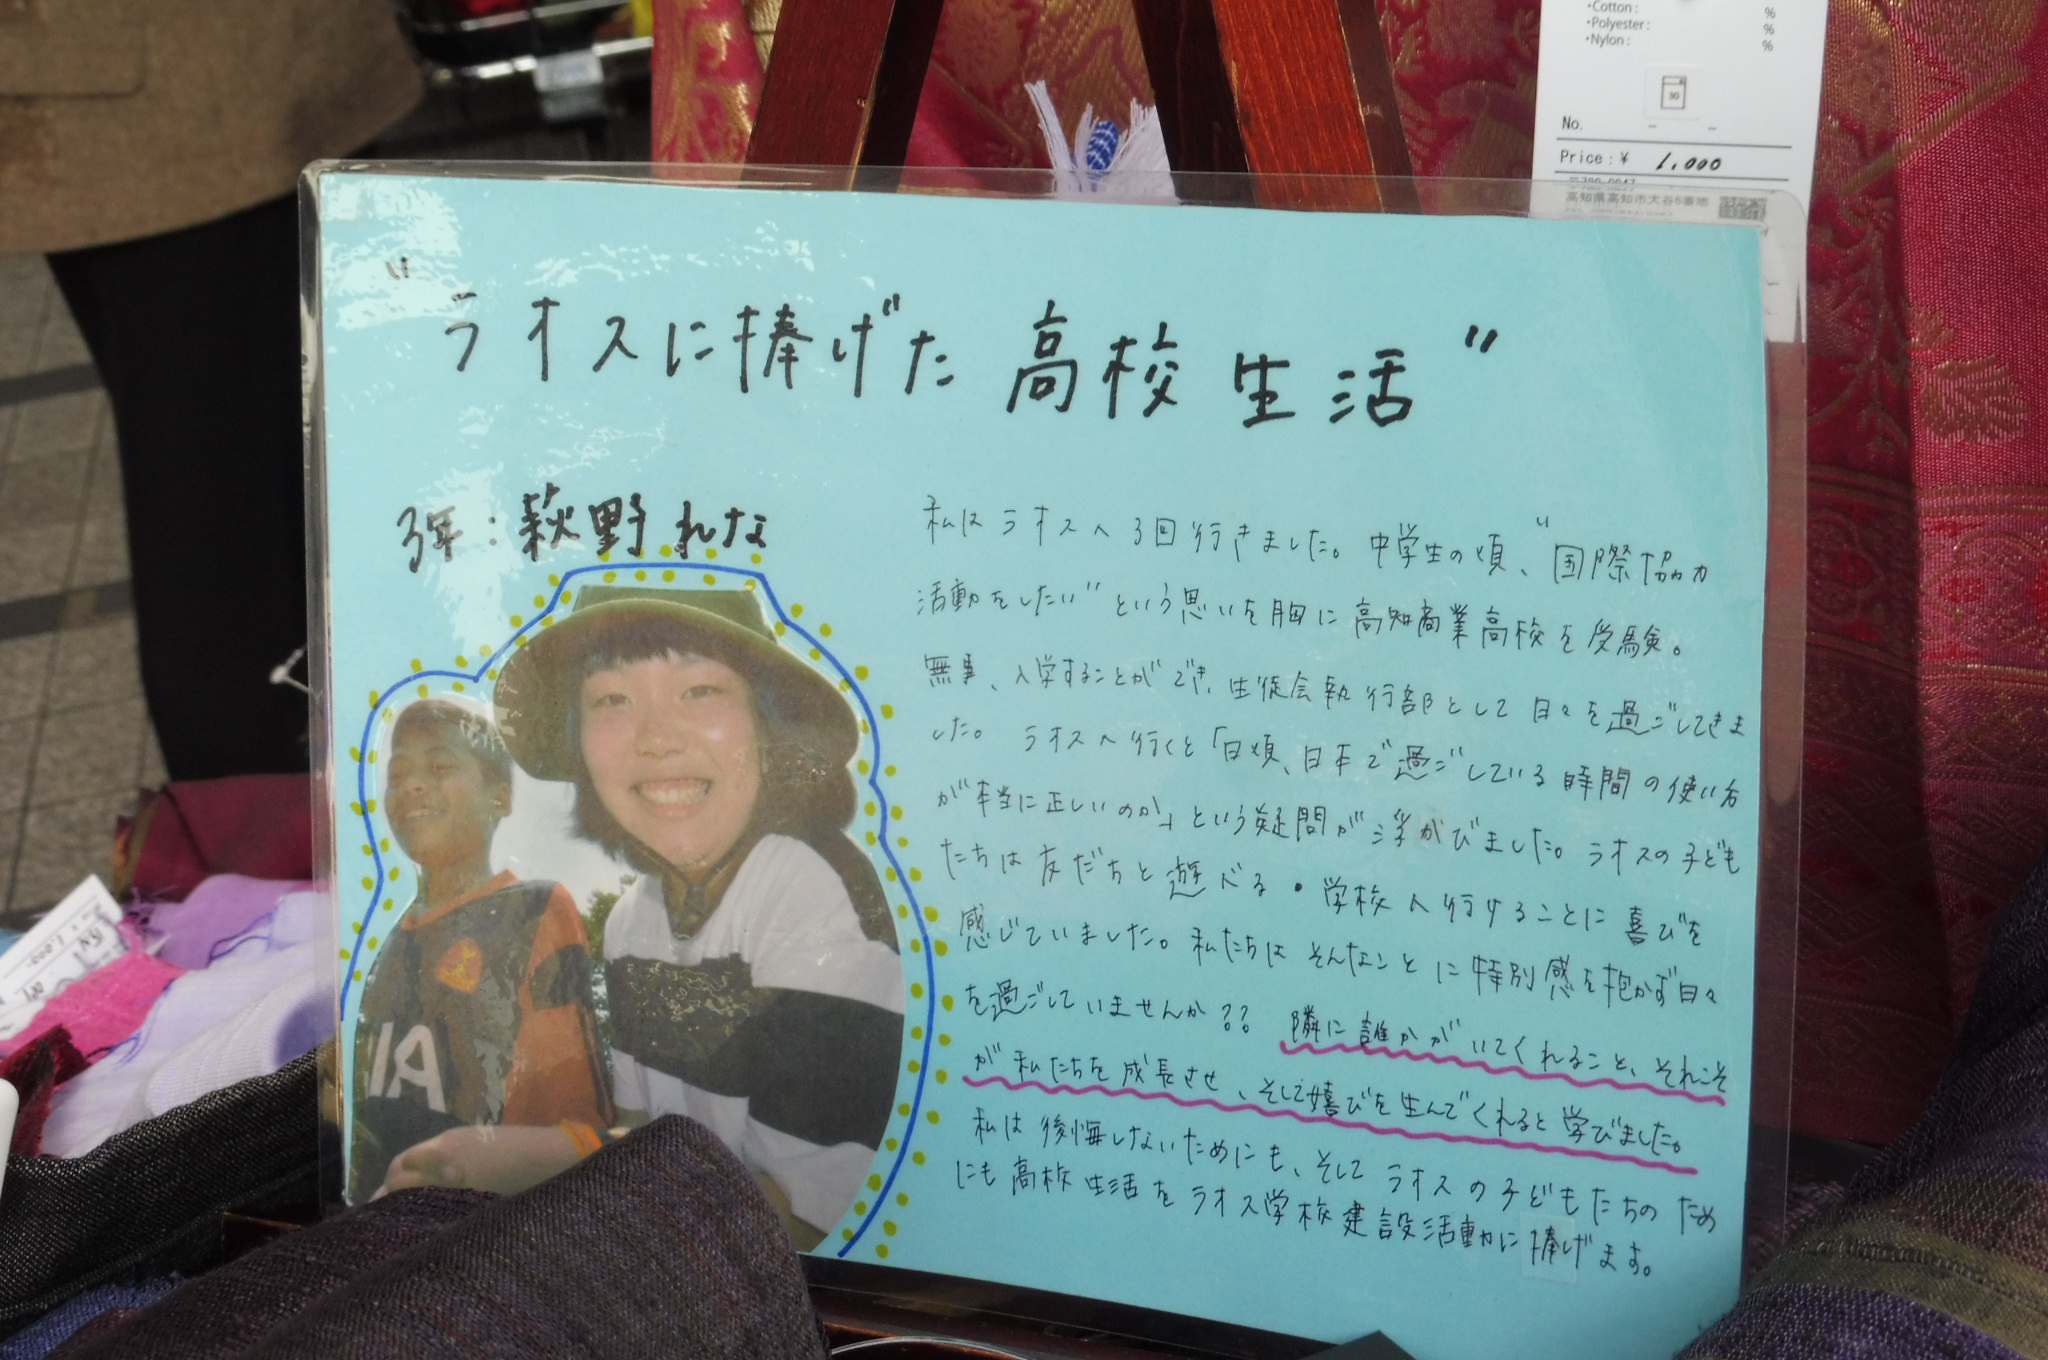 ・Cotton : %
・Polyester : %
・Nylon : %
30
No. － －
Price : ¥ 1,000
高知県高知市大谷6番地
"ラオスに捧げた高校生活"
3年 : 萩野 れな
私はラオスへ3回行きました。中学生の頃、"国際協力
活動をしたい"という思いを胸に高知商業高校を受験。
無事、入学することができ、生徒会執行部として日々を過ごしてきま
した。 ラオスへ行くと「日頃、日本で過ごしている時間の使い方
が本当に正しいのか」という疑問が浮かびました。ラオスの子ども
たちは友だちと遊べる・学校へ行けることに喜びを
感じていました。私たちはそんなことに特別感を抱かず日々
を過ごしていませんか?? 隣に誰かがいてくれること、それこそ
が私たちを成長させ、そして嬉びを生んでくれると学びました。
私は後悔しないためにも、そしてラオスの子どもたちのため
にも高校生活をラオス学校建設活動に捧げます。
AIA